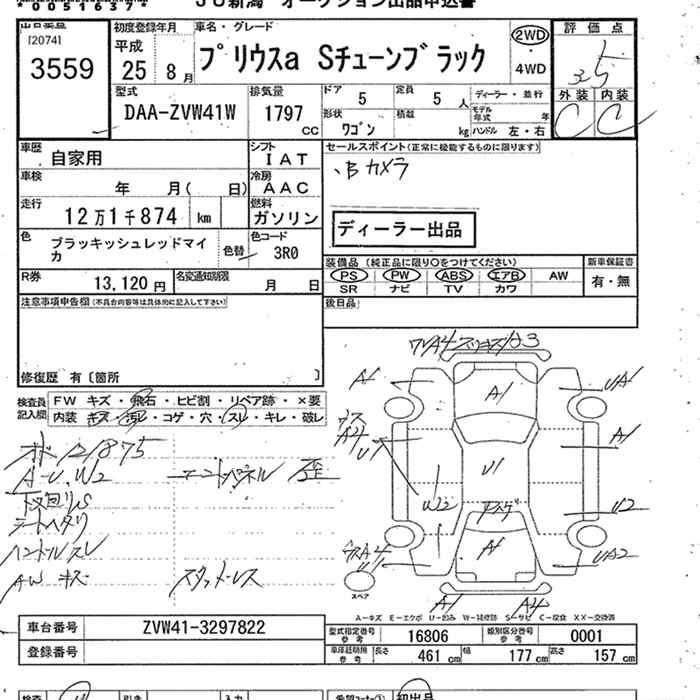 00516374
JU新潟 オークション出品申込書
[2074]
3559
初度登録年月
平成
25年 8月
車名・グレード
プリウスa Sチューンブラック
2WD
・
4WD
評価点
3.5
外装 内装
C C
型式
DAA-ZVW41W
排気量
1797
CC
ドア 5
定員 5 人
形状 ワゴン
積載 kg
ディーラー・並行
モデル年式 年
ハンドル 左・右
車歴
自家用
シフト
IAT
車検
年 月( 日)
冷房
AAC
走行
12万1千874 km
燃料
ガソリン
色
ブラッキッシュレッドマイカ
色替
色コード
3R0
R券
13,120円
名変通知期限
月 日
セールスポイント(正常に機能するものに限ります)
Bカメラ
ディーラー出品
装備品(純正品に限り○をつけてください)
PS PW ABS エアB AW
SR ナビ TV カワ
新車保証書
有・無
後日品
注意事項申告欄(不具合内容等は具体的に記入して下さい)
修復歴 有〔箇所 〕
検査員記入欄
FW キズ・飛石・ヒビ割・リペア跡・×要
内装 キズ・汚レ・コゲ・穴・スレ・キレ・破レ
121875
A-U.W2
下回りS
シートヘタリ
ハンドルスレ
AW キズ
歪
スタッドレス
A1
A1
UA1
A4
U1
A1
U1
W2
U2
A1
UA2
A1
A4
スペア
A-キズ E-エクボ U-凹み W-補修跡 S-サビ C-腐食 XX-交換済
車台番号
ZVW41-3297822
登録番号
型式指定番号 参考
16806
類別区分番号 参考
0001
車庫証明用 参考
長さ 461cm
幅 177cm
高さ 157cm